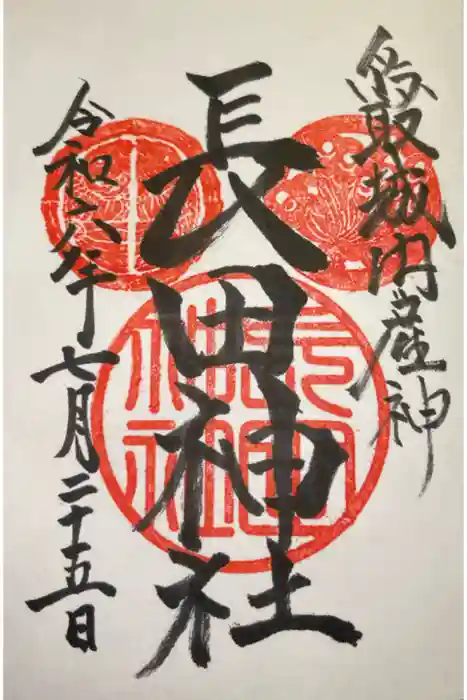 鳥取城内産神
長田神社
令和六年七月二十五日
長田
神社